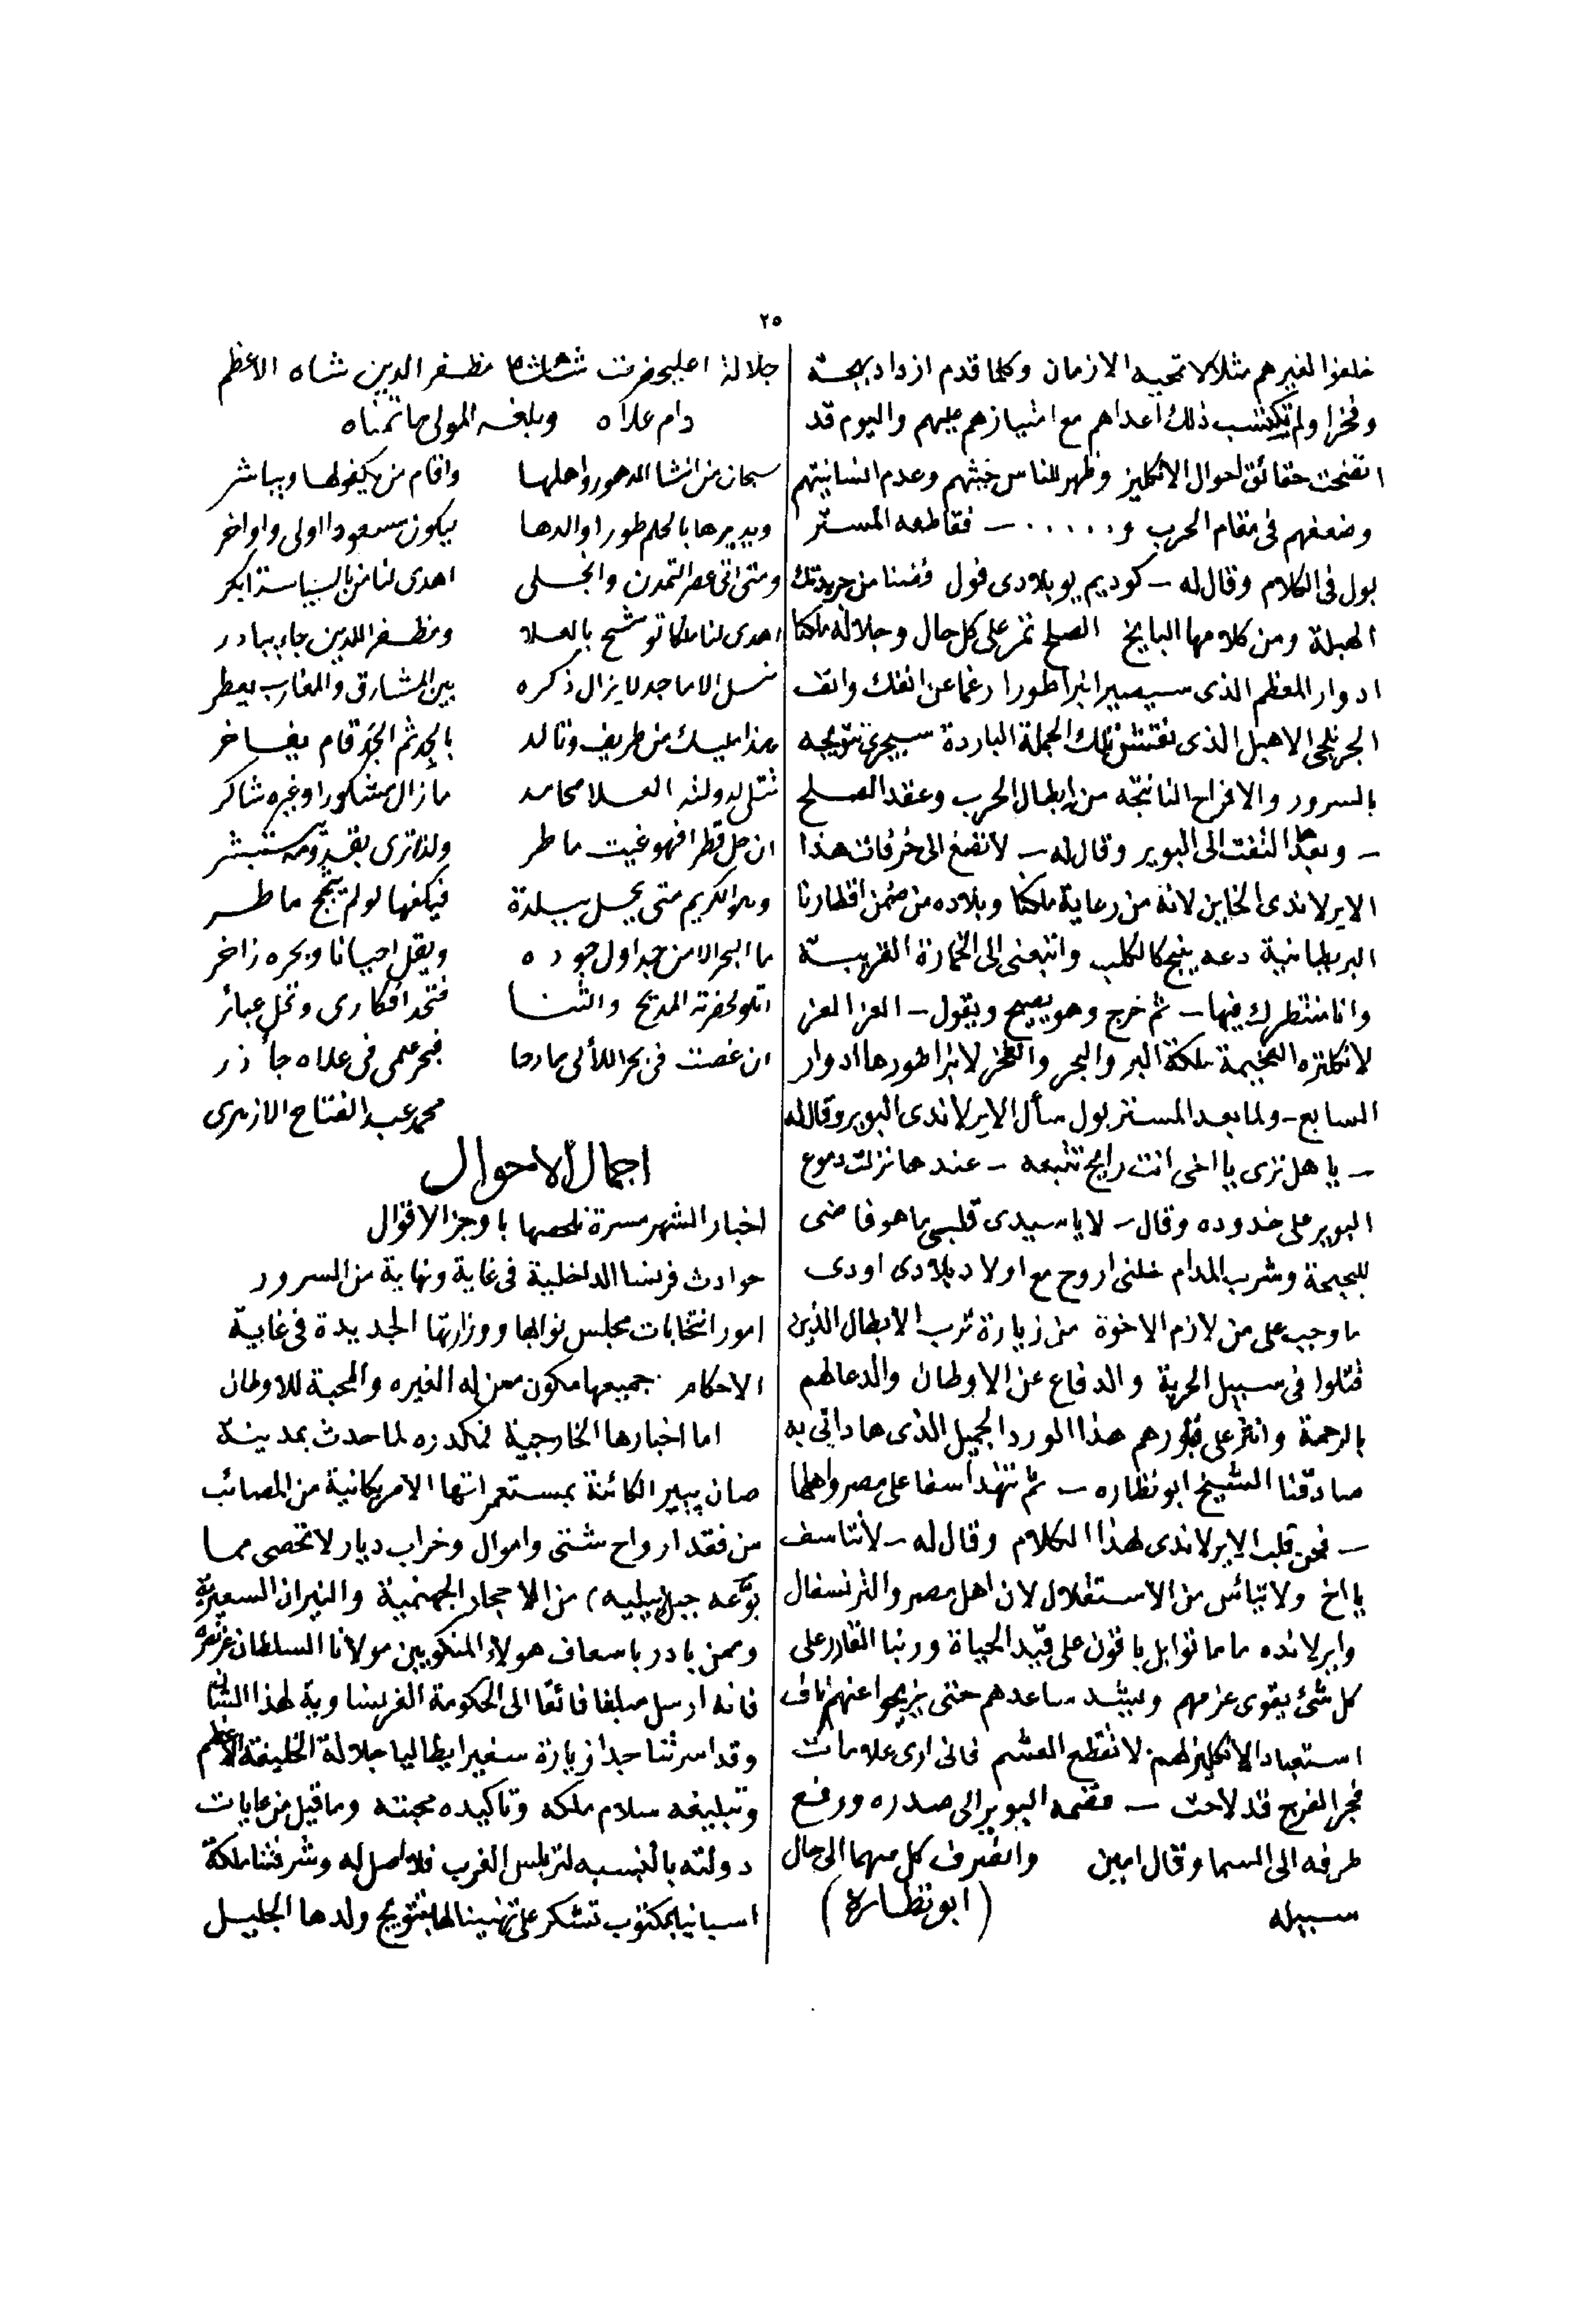 ٢٥
خلفوا لغيرهم مثلا لا تمحيه الازمان وكلما قدم ازداد بهجة
وفخرا ولم تكتسب ذلك اعداهم مع امتيازهم عليهم واليوم قد
اتضحت حقائق احوال الانكليز وظهر للناس خبثهم وعدم انسانيتهم
وضعفهم فى مقام الحرب و . . . . . — فقاطعه المستر
بول فى الكلام وقال له — كوديم يو بلادى فول فضنا من جريدتك
الهبلة ومن كلامها البايخ الصلح تم على كل حال وجلالة ملكنا
ادوار المعظم الذى سيصير انبراطورا رغما عن انفك وانف
الجرنلجى الاهبل الذى نقتش تلك الجملة الباردة سيجرى تتويجه
بالسرور والافراح الناتجة من ابطال الحرب وعقد الصلح
— وبعدها التفت الى البوير وقال له — لا تصغ الى خرفات هذا
الايرلاندى الخاين لانه من رعاية ملكنا وبلاده من ضمن اقطارنا
البريطانية دعه ينبح كالكلب واتبعنى الى الخمارة القريبة
وانا منتظرك فيها — ثم خرج وهو يصيح ويقول — العز العز
لانكلتره الفخيمة ملكة البر والبحر والفخر لانبراطورها ادوار
السابع — ولما بعد المستر بول سأل الايرلاندى البوير وقال له
— يا هل ترى يا اخى انت رايح تتبعه — عندها نزلت دموع
البوير على خدوده وقال — لا يا سيدى قلبى ما هو فاضى
للبحبحة وشرب المدام خلنى اروح مع اولاد بلادى اودى
ما وجب على من لازم الاخوة من زيارة ترب الابطال الذين
قتلوا فى سبيل الحرية والدفاع عن الاوطان والدعا لهم
بالرحمة وانثر على قبورهم هذا الورد الجميل الذى هادانى به
صادقنا الشيخ ابو نظاره — ثم تنهد اسفا على مصر واهلها
— فحن قلب الايرلاندى لهذا الكلام وقال له — لا تتاسف
يا اخ ولا تيأس من الاستقلال لان اهل مصر والترنسفال
وايرلانده ما ماتوا بل باقون على قيد الحياة وربنا القادر على
كل شئ يقوى عزمهم ويشد ساعدهم حتى يزيحوا عنهم ناف
استعباد الانكليز لهم لا تقطع العشم فانى ارى علامات
فجر الفرج قد لاحت — فضمه البوير الى صدره ورفع
طرفه الى السما وقال امين وانصرف كل منهما الى حال
سبيله (ابو نظارة)
جلالة اعليحضرت شاهنشاه مظفر الدين شاه الاعظم
دام علاه وبلغه المولى ما تمناه
سبحان من انشا الدهور واهلها وأقام من يكفوها ويباشر
ويديرها بالحلم طورا والدها ليكون سعودا اولى واواخر
ومتى اتى عصر التمدن وانجلى اهدى لنا من بالسياسة ابكر
اهدى لنا ملكا توشح بالعلا ومظفر الدين جاء يبادر
نسل الاماجد لا يزال ذكره بين المشارق والمغارب يعطر
هذا مليك من طريف وتالد بالجد ثم الجد قام يفاخر
تتلى لدولته العلا محامد ما زال مشكورا وغيره شاكر
ان حل قطرا فهو غيث ماطر ولذا ترى بقدومه تستبشر
وهو الكريم متى يحل ببلدة فيكفها لو لم يجئ ماطر
ما البحر الا من جداول جوده ويقل احيانا وبحره زاخر
اتلو لحضرته المديح والثنا فتحد افكارى وتخل عبائر
ان غصت فى بحر اللألى مادحا فبحر علمى فى علاه جأذر
محمد عبد الفتاح الازهرى
اجمال الاحوال
اخبار الشهر مسرة نلخصها باوجز الاقوال
حوادث فرنسا الداخلية فى غاية ونهاية من السرور
امور انتخابات مجلس نوابها ووزارتها الجديدة فى غاية
الاحكام جميعها مكون ممن له الغيره والمحبة للاوطان
اما اخبارها الخارجية فمكدره لما حدث بمدينة
صان پيير الكائنة بمستعمراتها الامريكانية من المصائب
من فقد ارواح شتى واموال وخراب ديار لا تحصى مما
بوتعه جبل بيليه) من الاحجار الجهنمية والنيران السعيرية
وممن بادر باسعاف هولاء المنكوبين مولانا السلطان عز نصره
فانه ارسل مبلغا فائقا الى الحكومة الفرنساوية لهذا الشأن
وقد اسرتنا جدا زيارة سفير ايطاليا جلالة الخليفة الاعظم
وتبليغه سلام ملكه وتاكيده محبته وما قيل من غايات
دولته بالنسبه لتربلس الغرب فلا اصل له وشرفتنا ملكة
اسبانيا بمكتوب تشكر على تهنينا لها بتتويج ولدها الجليل